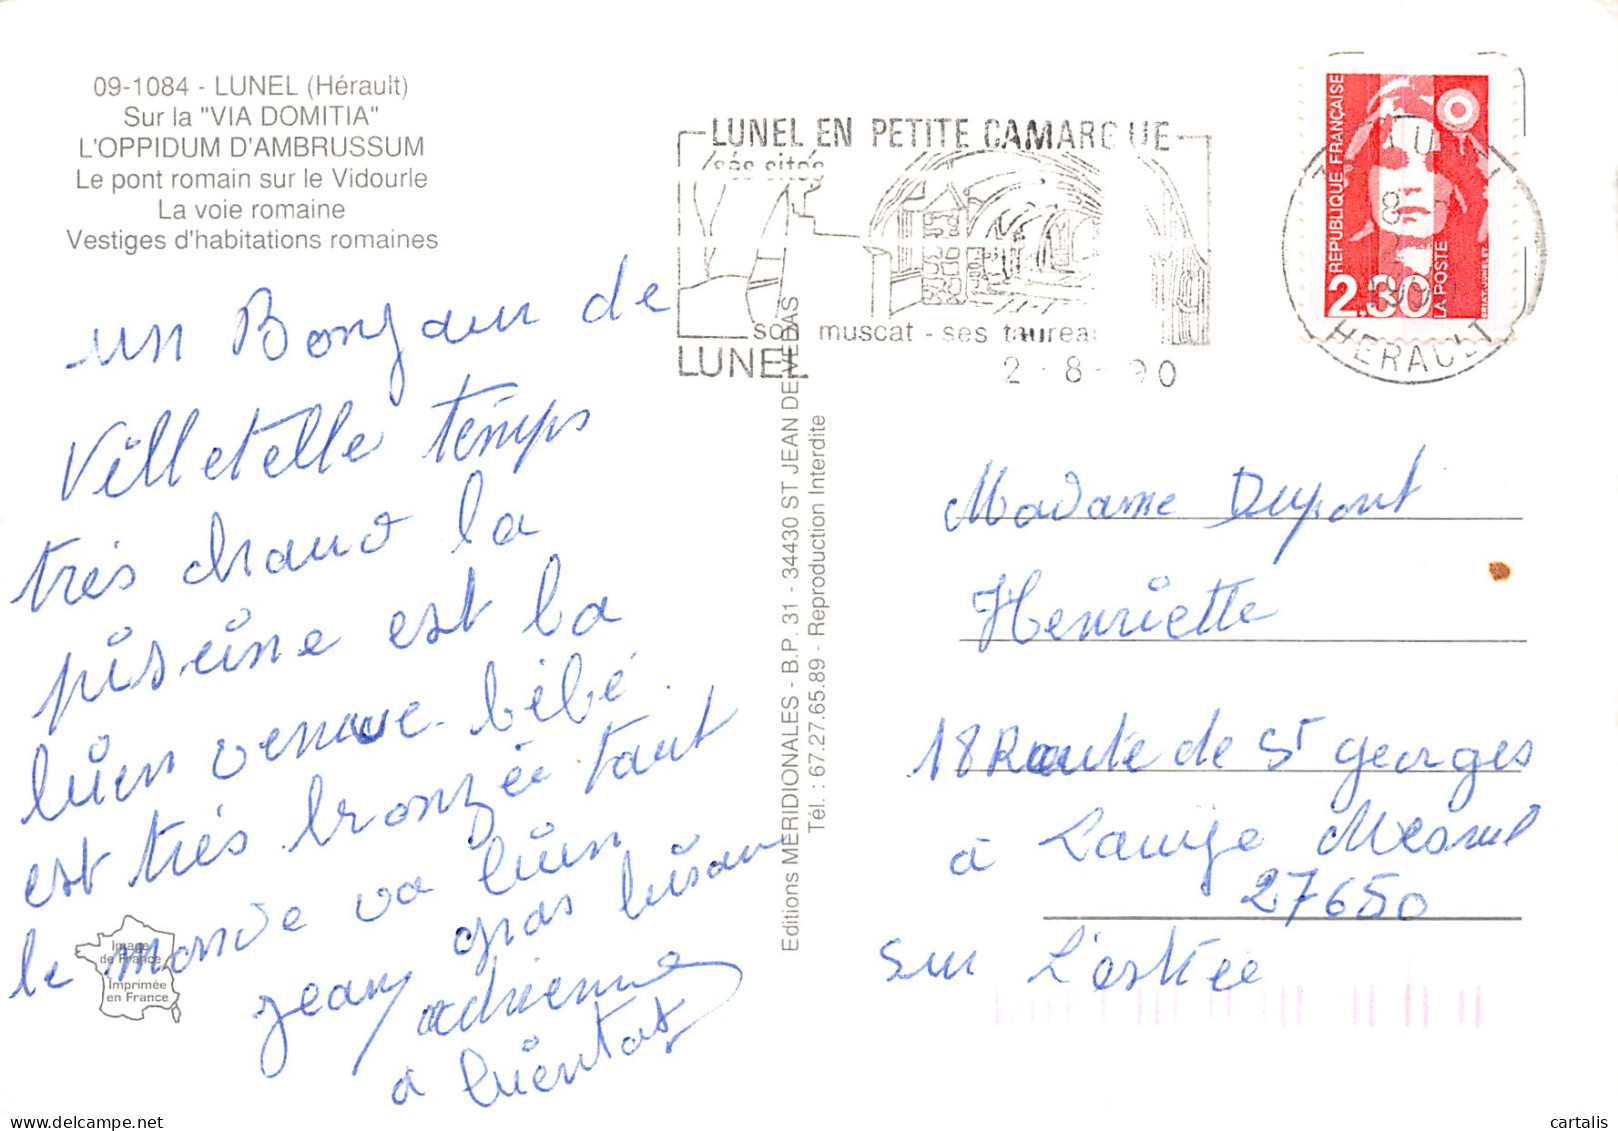 09-1084 - LUNEL (Hérault)
Sur la "VIA DOMITIA"
L'OPPIDUM D'AMBRUSSUM
Le pont romain sur le Vidourle
La voie romaine
Vestiges d'habitations romaines
un Bonjour de
Villetelle temps
très chaud la
piseine est la
bien venue bébé.
est très bronzée tout
le monde va bien
gros bisou
jean adrienne
à bientot
Image
de France
Imprimée
en France
Editions MERIDIONALES - B.P. 31 - 34430 ST JEAN DE VEDAS
Tél. : 67.27.65.89 - Reproduction Interdite
LUNEL EN PETITE CAMARGUE
ses sites
son muscat - ses taureau
LUNEL
2 - 8 - 90
RÉPUBLIQUE FRANÇAISE
2,30
LA POSTE
BRIAT-JUMELET
HERAULT
Madame Dupont
Henriette
18 Route de St georges
à Mesnil
27650
sur L'estrée
cartalis.com